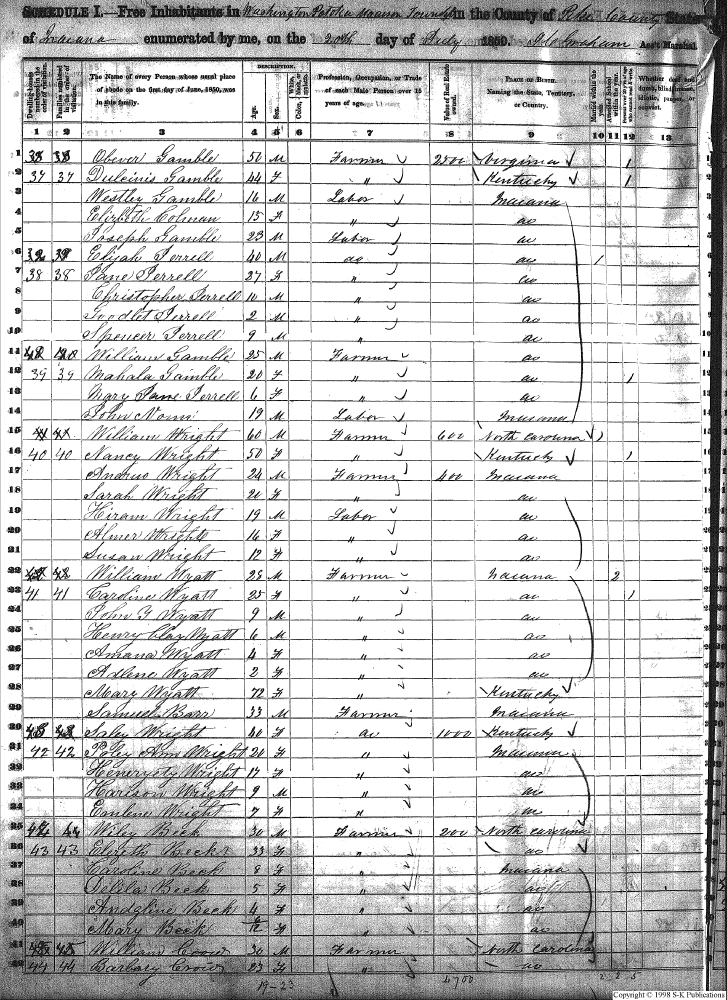 SCHEDULE I.—Free Inhabitants in Washington Patoka Township in the County of Pike County State
of Indiana enumerated by me, on the 20th day of July 1850. Graham Ass't Marshal.
Dwelling-houses numbered in the order of visitation.
Families numbered in the order of visitation.
The Name of every Person whose usual place of abode on the first day of June, 1850, was in this family.
DESCRIPTION.
Age.
Sex.
Color, White, black, or mulatto.
Profession, Occupation, or Trade of each Male Person over 15 years of age.
Value of Real Estate owned.
PLACE OF BIRTH. Naming the State, Territory, or Country.
Married within the year.
Attended School within the year.
Whether deaf and dumb, blind, insane, idiotic, pauper, or convict.
1 2 3 4 5 6 7 8 9 10 11 12 13
1 38 38 Obever Gamble 50 M Farmer 2500 Virginia 1
2 37 37 Dulcinis Gamble 44 F " Kentucky 1
3 Westley Gamble 16 M Labor Indiana
4 Elizbeth Colman 15 F " do
5 Joseph Gamble 23 M Labor do
6 39 Elijah Terrell 40 M do do 1
7 38 38 Jane Terrell 27 F " do
8 Christopher Terrell 10 M " do
9 Goodlet Terrell 2 M " do
10 Spencer Terrell 9 M do
11 William Gamble 25 M Farmer do
12 39 39 Mahala Gamble 20 F " do 1
13 Mary Jane Terrell 6 F do
14 John 19 M Labor Indiana
15 41 41 William Wright 60 M Farmer 600 North Carolina
16 40 40 Nancy Wright 50 F " Kentucky 1
17 Andrus Wright 24 M Farmer 400 Indiana
18 Sarah Wright 20 F " do
19 Hiram Wright 19 M Labor do
20 Almer Wright 16 F " do
21 Susan Wright 12 F " do
22 42 42 William Wyatt 28 M Farmer Indiana 2
23 41 41 Caroline Wyatt 25 F " do 1
24 John Wyatt 9 M " do
25 Henry Clay Wyatt 6 M " do
26 Amana Wyatt 4 F " do
27 Adline Wyatt 2 F " do
28 Mary Wyatt 72 F " Kentucky
29 Samuel Barr 33 M Farmer Indiana
30 43 43 Saley Wright 40 F do 1000 Kentucky
31 42 42 Ann Wright 20 F " Indiana
32 Wright 17 F " do
33 Harison Wright 9 M " do
34 Emlene Wright 7 F " do
35 44 44 Wiley Beck 30 M Farmer 200 North Carolina
36 43 43 Beck 33 F " do
37 Caroline Beck 8 F " Indiana
38 Delila Beck 5 F " do
39 Beck 4 F " do
40 Mary Beck F " do
41 45 45 William Crow 30 M Farmer North Carolina
42 44 44 Barbary Crow 23 F " do
19-23 4700 2 2 5
Copyright © 1998 S-K Publications